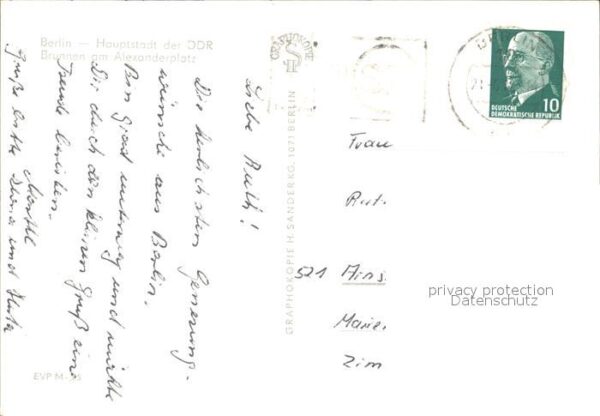 Berlin — Hauptstadt der DDR
Brunnen am Alexanderplatz
Liebe Ruth!
Die herzlichsten Genesungs-
wünsche aus Berlin.
Bin grad unterwegs und möchte
Dir durch den kleinen Gruß eine
Freude bereiten.
Gruß
und
EVP M
GRAPHOKOPIE H. SANDER KG, 1071 BERLIN
GRAPHOKOPIE
BERLIN
10
DEUTSCHE
DEMOKRATISCHE REPUBLIK
Frau
Rut.
521 Arns.
Marie.
Zim
privacy protection
Datenschutz